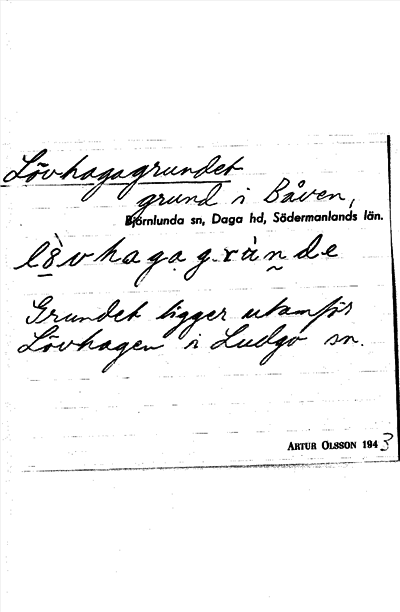 Lövhagagrundet
grund i Båven,
Björnlunda sn, Daga hd, Södermanlands län.
l8̀vhagagrùnde
Grundet ligger utanför
Lövhagen i Ludgo sn.
ARTUR OLSSON 1943